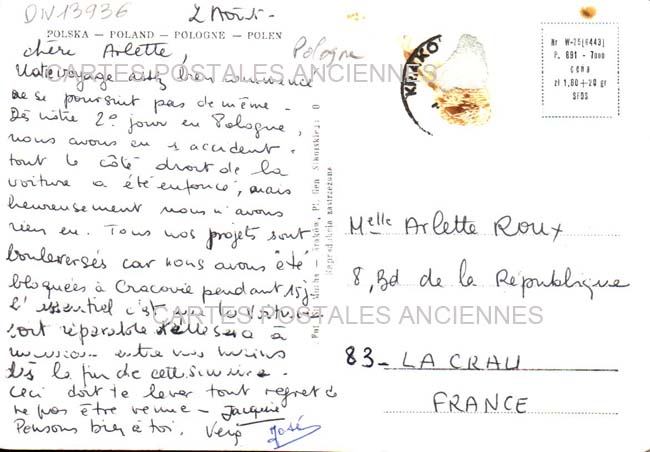 DN13936
2 Août -
POLSKA — POLAND — POLOGNE — POLEN
Pologne
Chère Arlette,
Notre voyage assez bien commencé
ne se poursuit pas de même -
Dès notre 2° jour en Pologne,
nous avons eu 1 accident.
tout le côté droit de la
voiture a été enfoncé, mais
heureusement nous n'avons
rien eu. Tous nos projets sont
bouleversés car nous avons été
bloquées à Cracovie pendant 15 j.
L'essentiel c'est que la voiture
soit réparable et elle sera à
nouveau entre nos mains
dès la fin de cette semaine.
Ceci doit te lever tout regret de
ne pas être venue - Jacquie
Pensons bien à toi. José
CARTES POSTALES ANCIENNES
CARTES POSTALES ANCIENNES
KRAKÓ
Kraków, Pl. Gen. Sikorskiego
Reprodukcja zastrzeżona
Nr W-25(6443)
P. 691 - Tnno
cena
zł 1,60+20 gr
SFOS
Melle Arlette Roux
8, Bd de la République
83 - LA CRAU
FRANCE